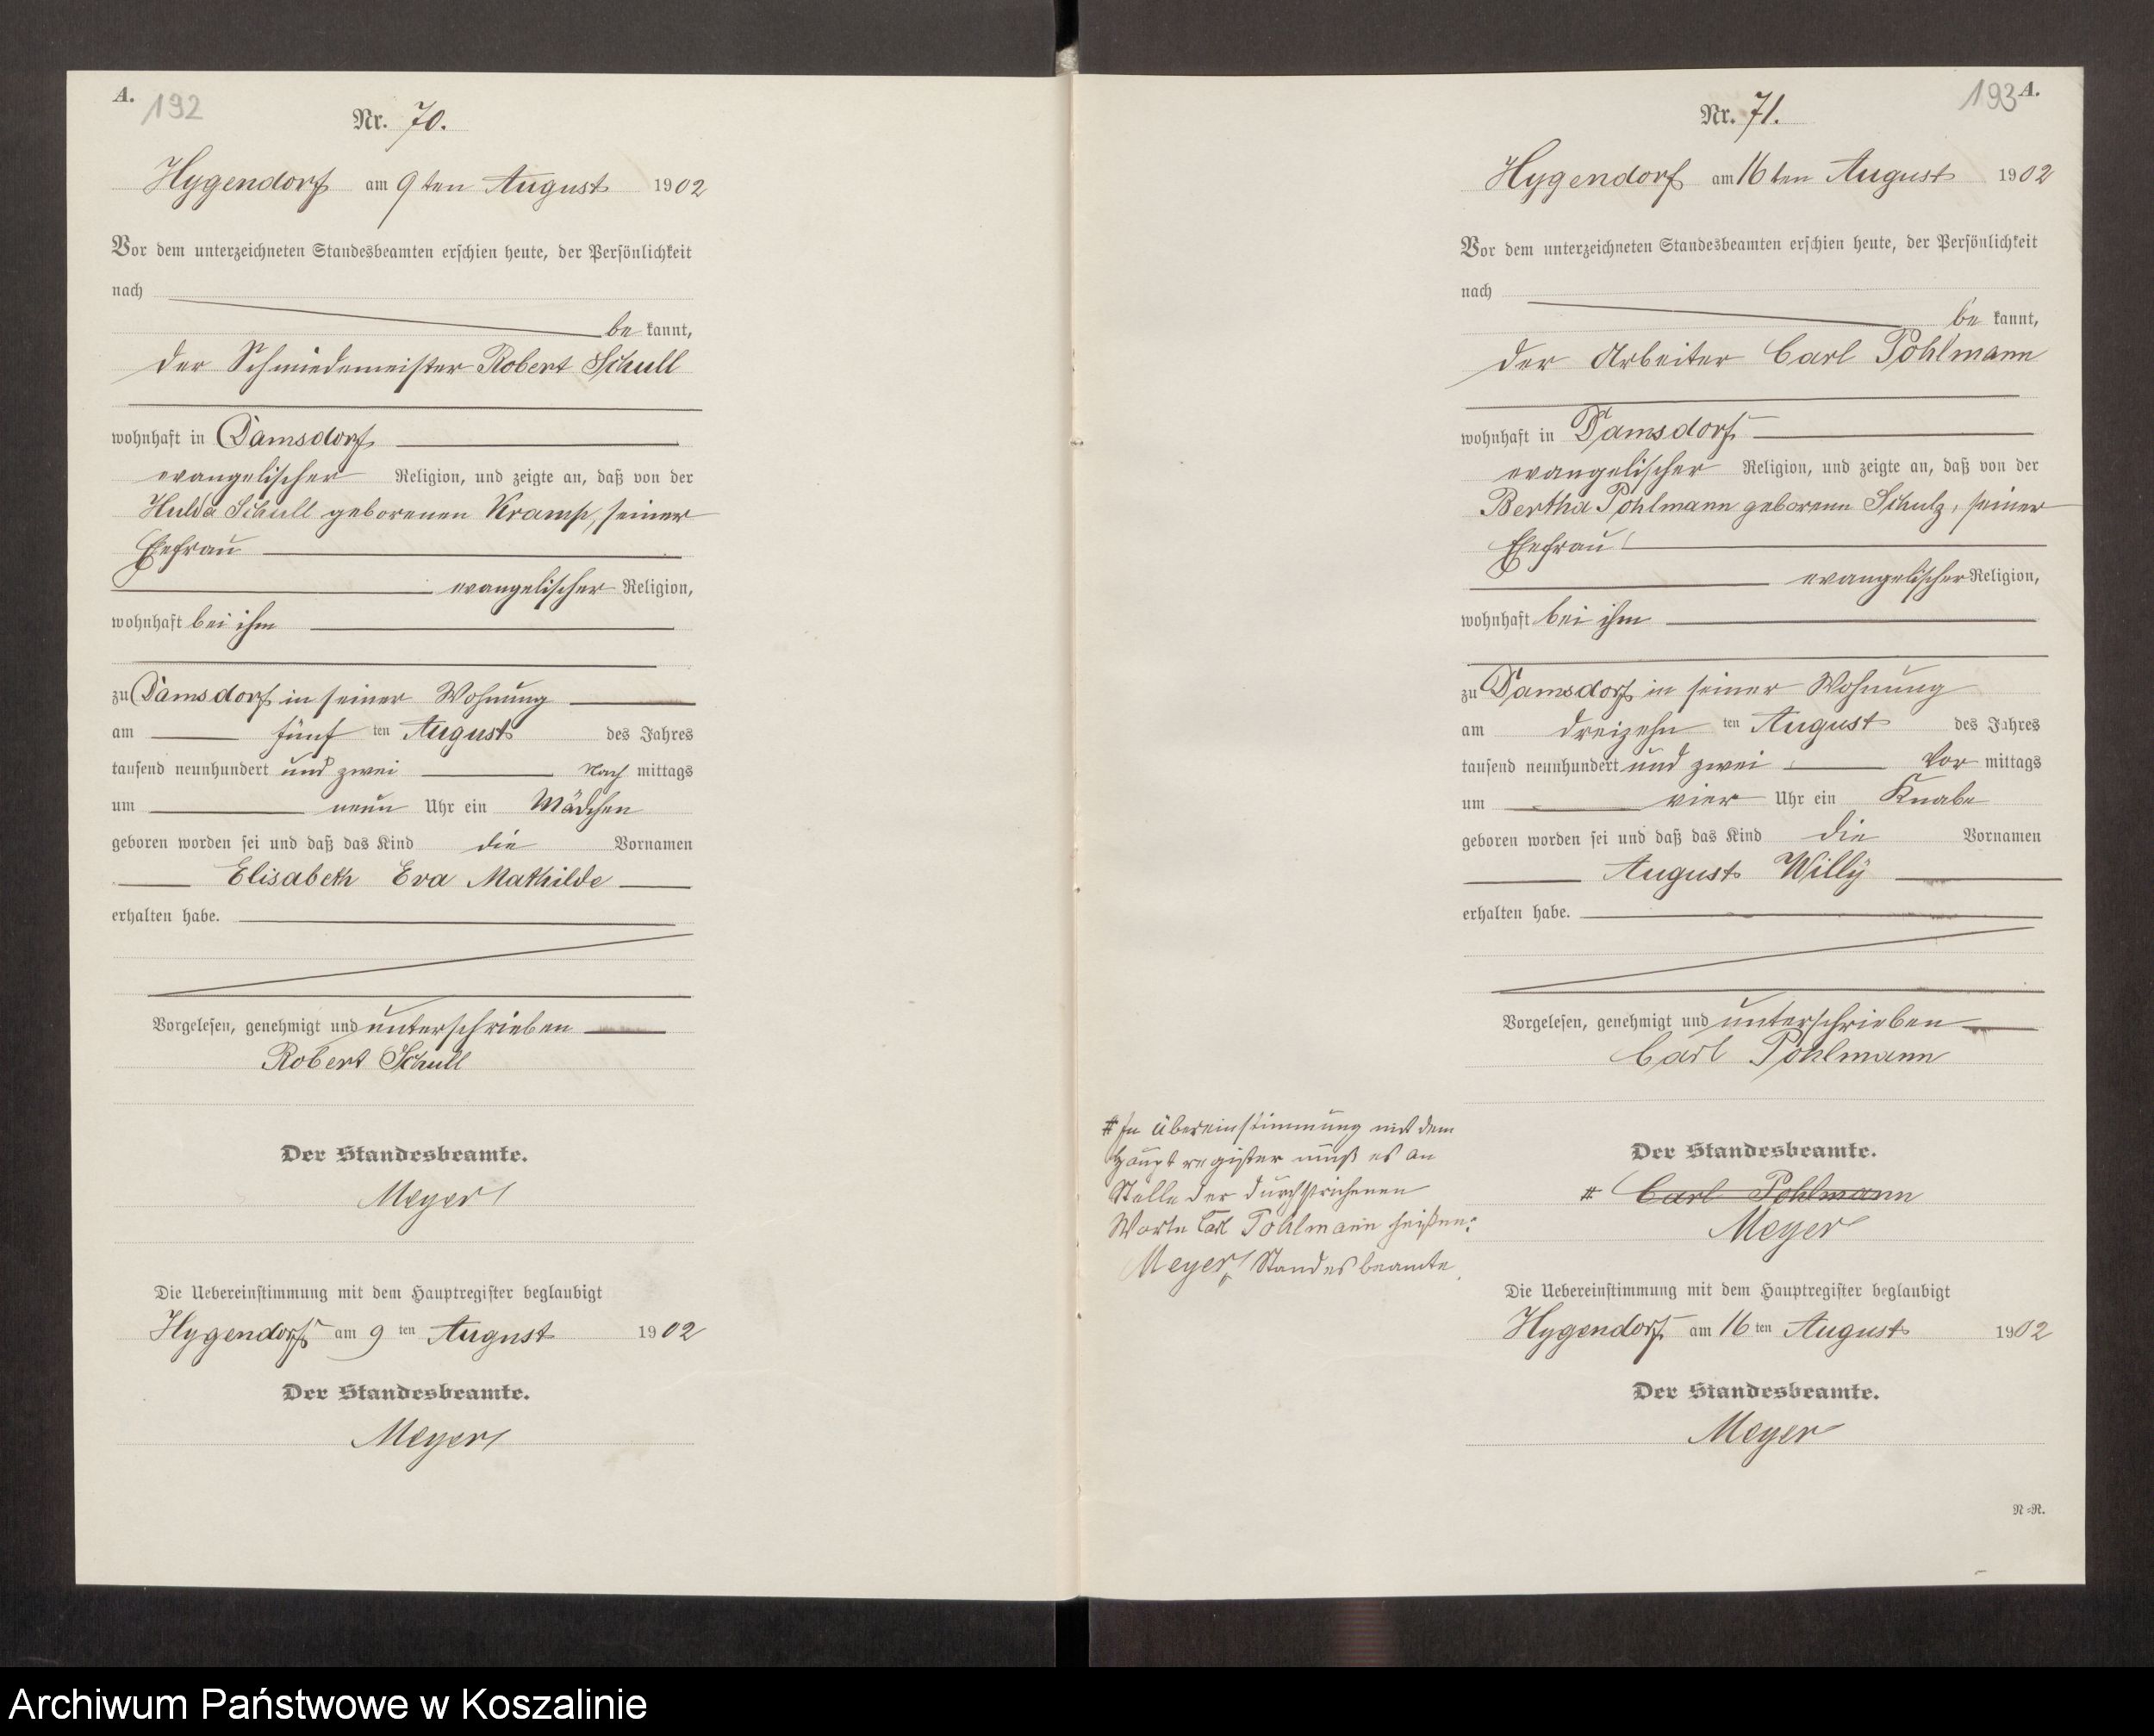 A.
192
Nr. 70.
Hygendorf am 9ten August 1902
Vor dem unterzeichneten Standesbeamten erschien heute, der Persönlichkeit
nach
be kannt,
der Schmiedemeister Robert Schull
wohnhaft in Damsdorf
evangelischer Religion, und zeigte an, daß von der
Hulda Schull geborenen Kramp, seiner
Ehefrau
evangelischer Religion,
wohnhaft bei ihm
zu Damsdorf in seiner Wohnung
am fünf ten August des Jahres
tausend neunhundert und zwei Nach mittags
um neun Uhr ein Mädchen
geboren worden sei und daß das Kind die Vornamen
Elisabeth Eva Mathilde
erhalten habe.
Vorgelesen, genehmigt und unterschrieben
Robert Schull
Der Standesbeamte.
Meyer
Die Uebereinstimmung mit dem Hauptregister beglaubigt
Hygendorf am 9 ten August 1902
Der Standesbeamte.
Meyer
193 A.
Nr. 71.
Hygendorf am 16ten August 1902
Vor dem unterzeichneten Standesbeamten erschien heute, der Persönlichkeit
nach
be kannt,
der Arbeiter Carl Pohlmann
wohnhaft in Damsdorf
evangelischer Religion, und zeigte an, daß von der
Bertha Pohlmann geborene Schulz, seiner
Ehefrau
evangelischer Religion,
wohnhaft bei ihm
zu Damsdorf in seiner Wohnung
am dreizehn ten August des Jahres
tausend neunhundert und zwei Vor mittags
um vier Uhr ein Knabe
geboren worden sei und daß das Kind die Vornamen
August Willy
erhalten habe.
Vorgelesen, genehmigt und unterschrieben
Carl Pohlmann
# In Übereinstimmung mit dem
Hauptregister muß es an
Stelle der durchstrichenen
Worte Carl Pohlmann heißen:
Meyer, Standesbeamte
Der Standesbeamte.
# Carl Pohlmann
Meyer
Die Uebereinstimmung mit dem Hauptregister beglaubigt
Hygendorf am 16 ten August 1902
Der Standesbeamte.
Meyer
N=R.
Archiwum Państwowe w Koszalinie